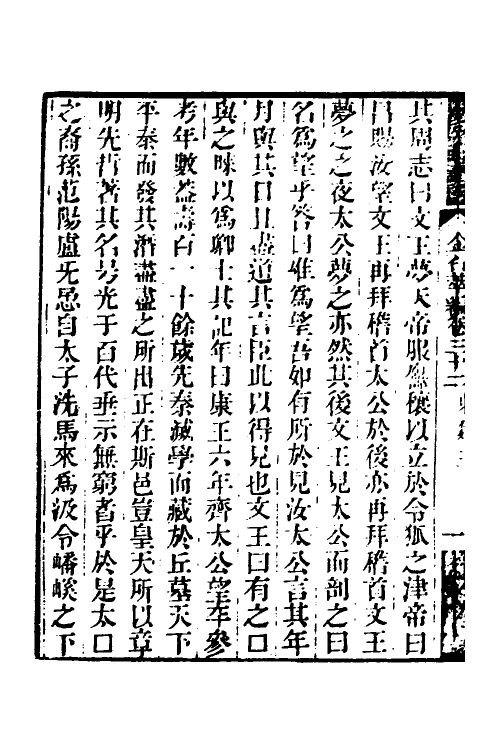 其周志曰文王夢天帝服𤣥禳以立於令狐之津帝曰
昌賜汝望文王再拜稽首太公於後亦再拜稽首文王
夢之之夜太公夢之亦然其後文王見太公而剖之曰
名爲望乎答曰唯爲望吾如有所於見汝太公言其年
月與其日且盡道其言臣此以得見也文王曰有之囗
與之歸以爲卿士其記年曰康王六年齊太公望卒參
考年數蓋壽百一十餘歲先秦滅學而藏於丘墓天下
平泰而發其潛書書之所出正在斯邑豈皇天所以章
明先哲著其名号光于百代垂示無窮者乎於是太囗
之裔孫范陽盧旡忌自太子洗馬來爲汲令磻溪之下
金石萃編卷二十二